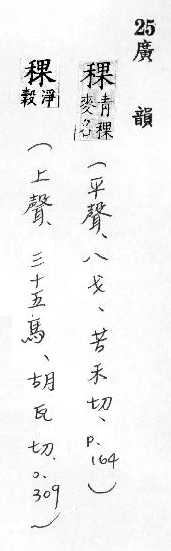 25廣韻
稞青稞麥名(平聲、八戈、苦禾切、P.164)
稞淨穀(上聲、三十五馬、胡瓦切、P.309)